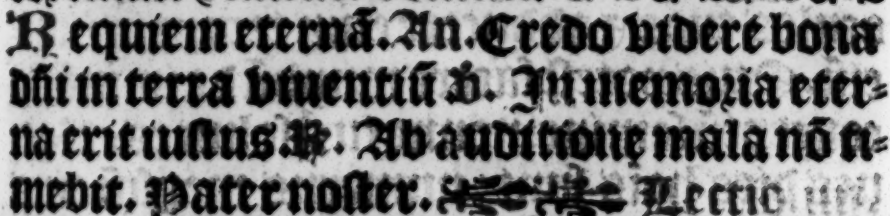 Requiem eternã. An. Credo videre bona
dñi in terra viuentiũ ꝟ. In memoria eter⸗
na erit iustus. ℟. Ab auditione mala nõ ti⸗
mebit. Pater noster. Lectio